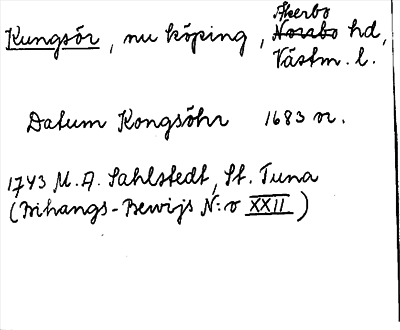 Akerbo
Kungsör, nu köping, Norsbo hd,
Västm. l.
Datum Kongsöhr 1683 or.
1743 M. A. Sahlstedt, St. Tuna
(Bihangs-Bewijs N:o XXII)